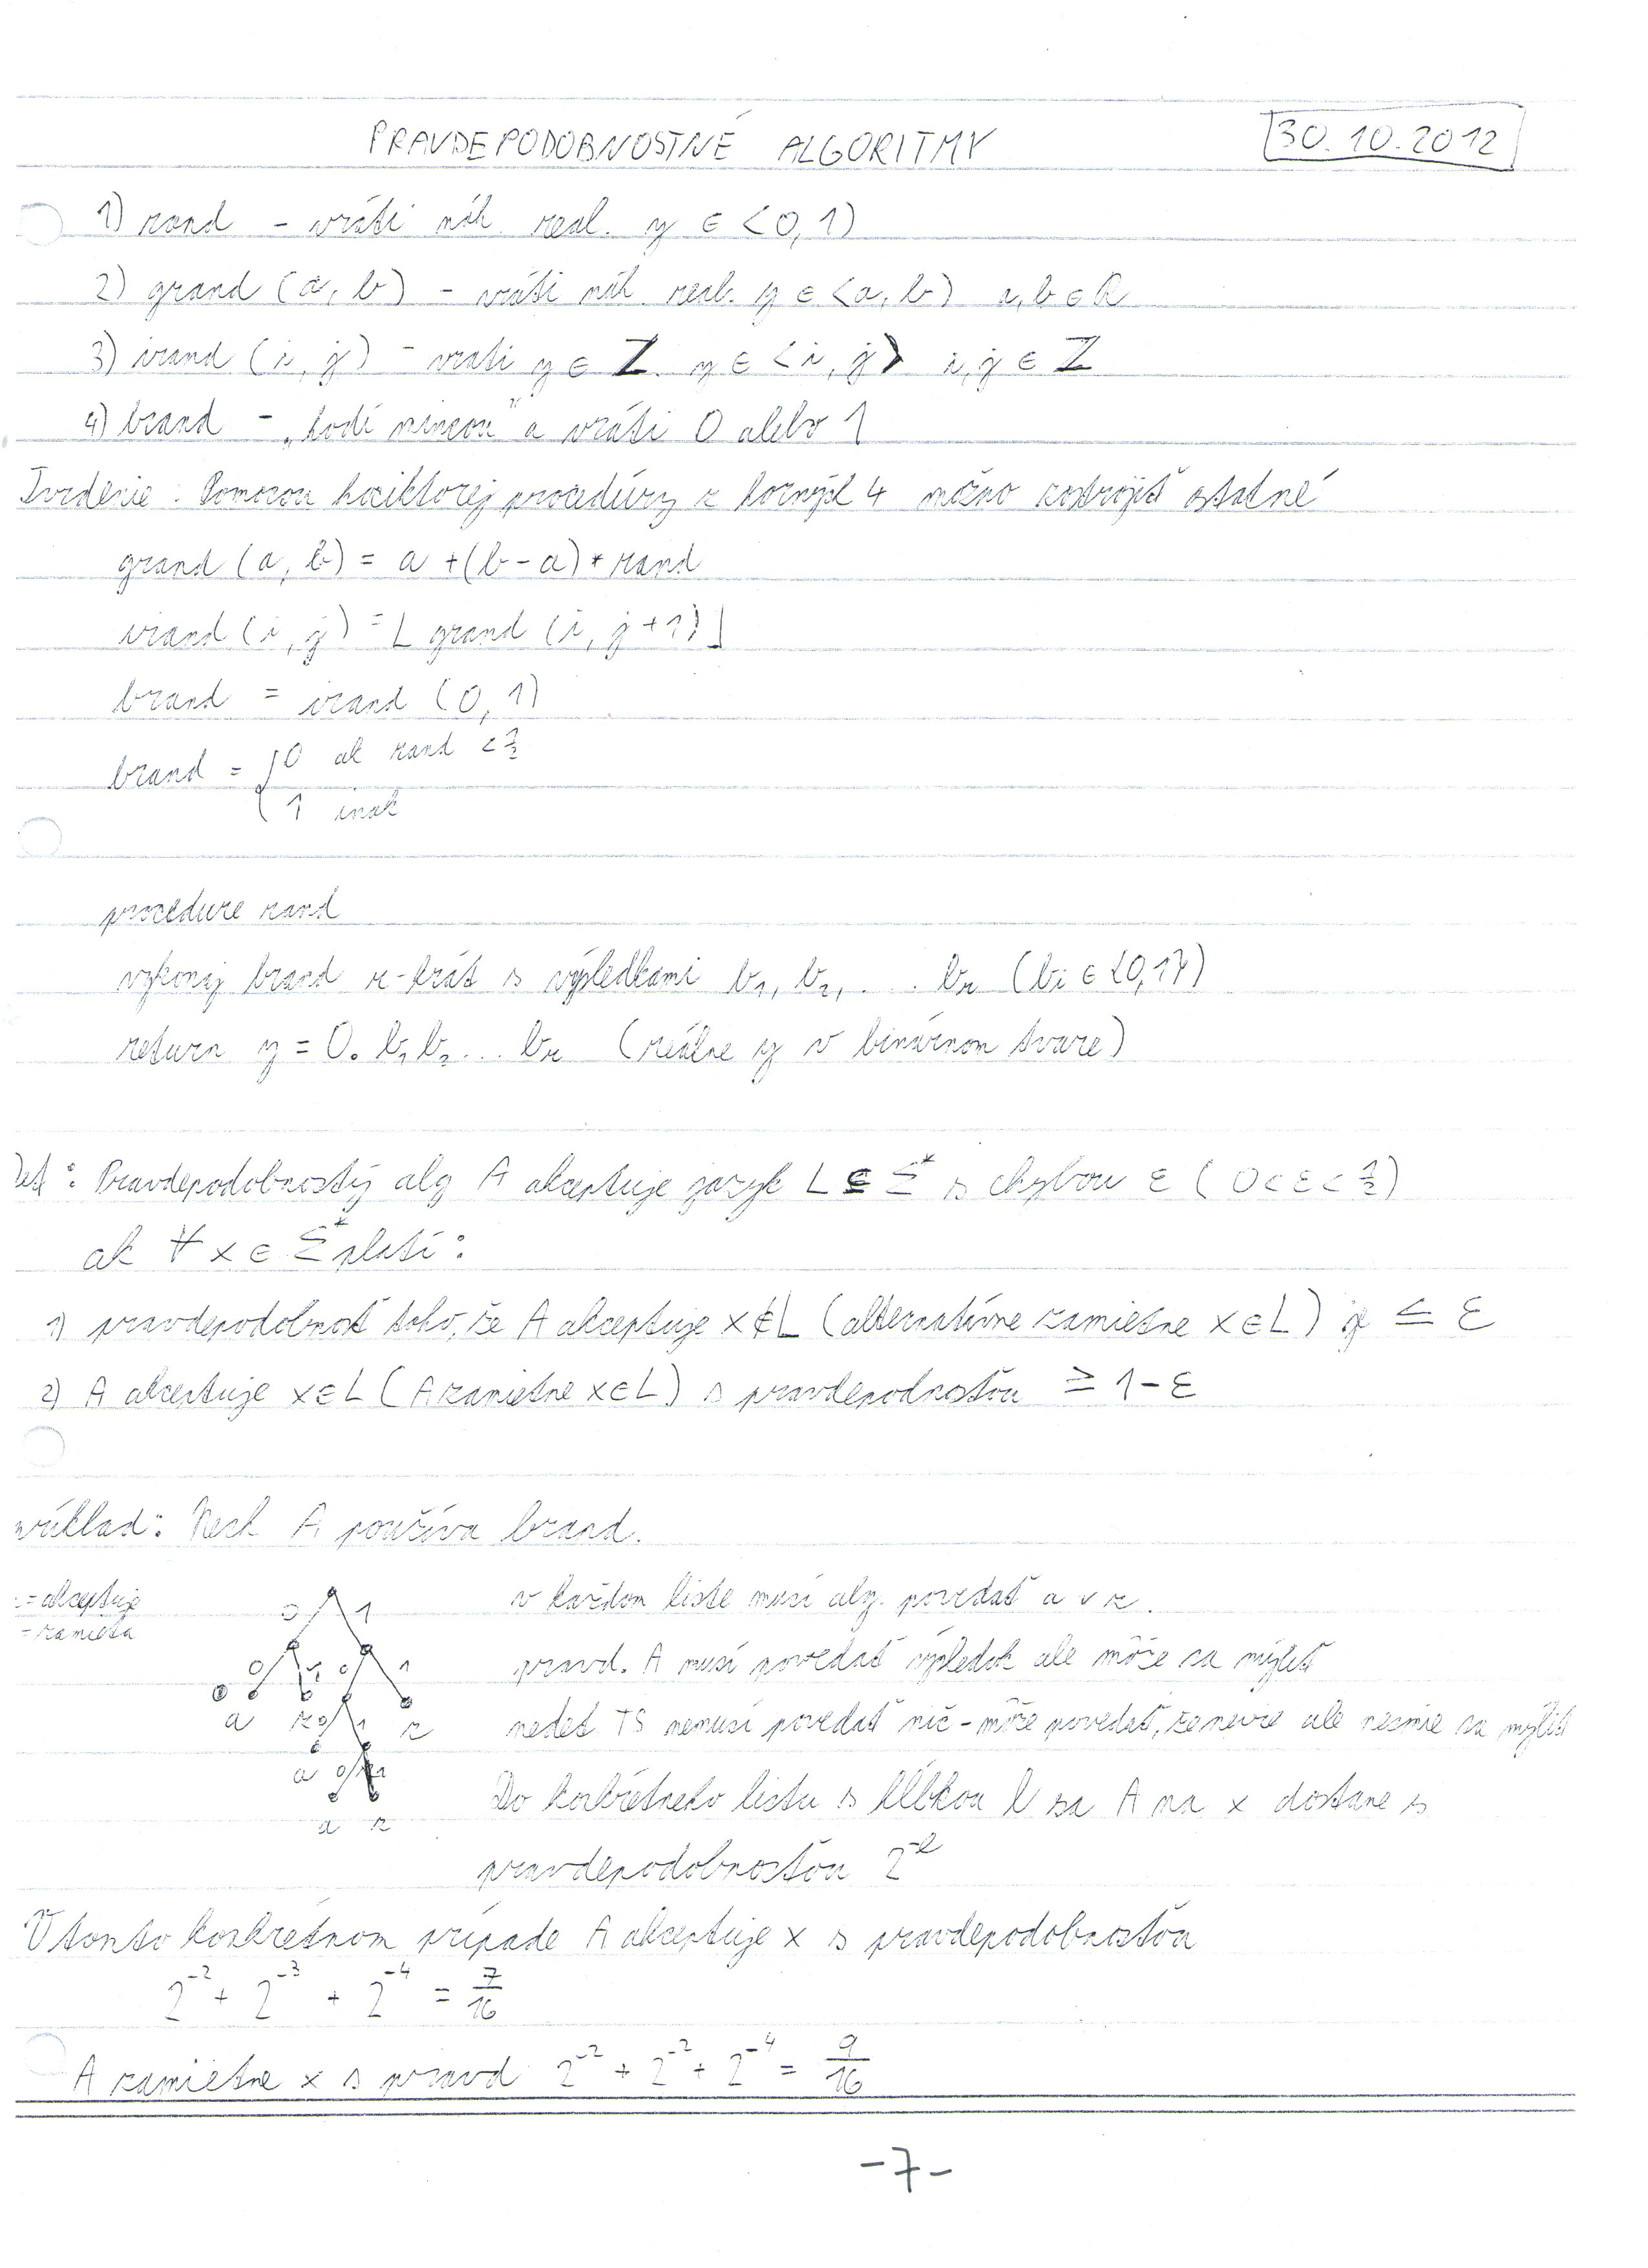 PRAVDEPODOBNOSTNÉ ALGORITMY 30.10.2012
1) rand - vráti náh. real. y ∈ <0,1)
2) grand (a, b) - vráti náh. real. y ∈ <a, b) a, b ∈ R
3) irand (i, j) - vrati y ∈ Z. y ∈ <i, j> i, j ∈ Z
4) brand - „hodí mincou" a vráti 0 alebo 1
Tvrdenie : Pomocou hociktorej procedúry z horných 4 možno zostrojiť ostatné
grand (a, b) = a + (b - a) * rand
irand (i, j) = ⌊ grand (i, j + 1) ⌋
brand = irand (0, 1)
brand = { 0 ak rand < 1/2
1 inak
procedure rand
vykonaj brand r-krát s výsledkami b₁, b₂, ... bᵣ (bᵢ ∈ {0,1})
return y = 0. b₁ b₂ ... bᵣ (reálne y v binárnom tvare)
Def : Pravdepodobnostý alg A akceptuje jazyk L ⊆ Σ* s chybou ε ( 0 < ε < 1/2 )
ak ∀ x ∈ Σ* platí :
1) pravdepodobnosť toho, že A akceptuje x ∉ L (alternatívne zamietne x ∈ L) je ≤ ε
2) A akceptuje x ∈ L ( A zamietne x ∈ L ) s pravdepodnosťou ≥ 1 - ε
príklad : Nech A používa brand.
= akceptuje
= zamieta
0 1
0 1 0 1
a z 0 1 z
a 0 1
a z
v každom liste musí alg. povedať a v z.
pravd. A musí povedať výsledok ale môže sa mýliť
nedet TS nemusí povedať nič - môže povedať, že nevie ale nesmie sa mýliť
Do konkrétneho listu s hĺbkou l sa A na x dostane s
pravdepodobnosťou 2^-l
V tomto konkrétnom prípade A akceptuje x s pravdepodobnosťou
2^-2 + 2^-3 + 2^-4 = 7/16
A zamietne x s pravd 2^-2 + 2^-2 + 2^-4 = 9/16
-7-